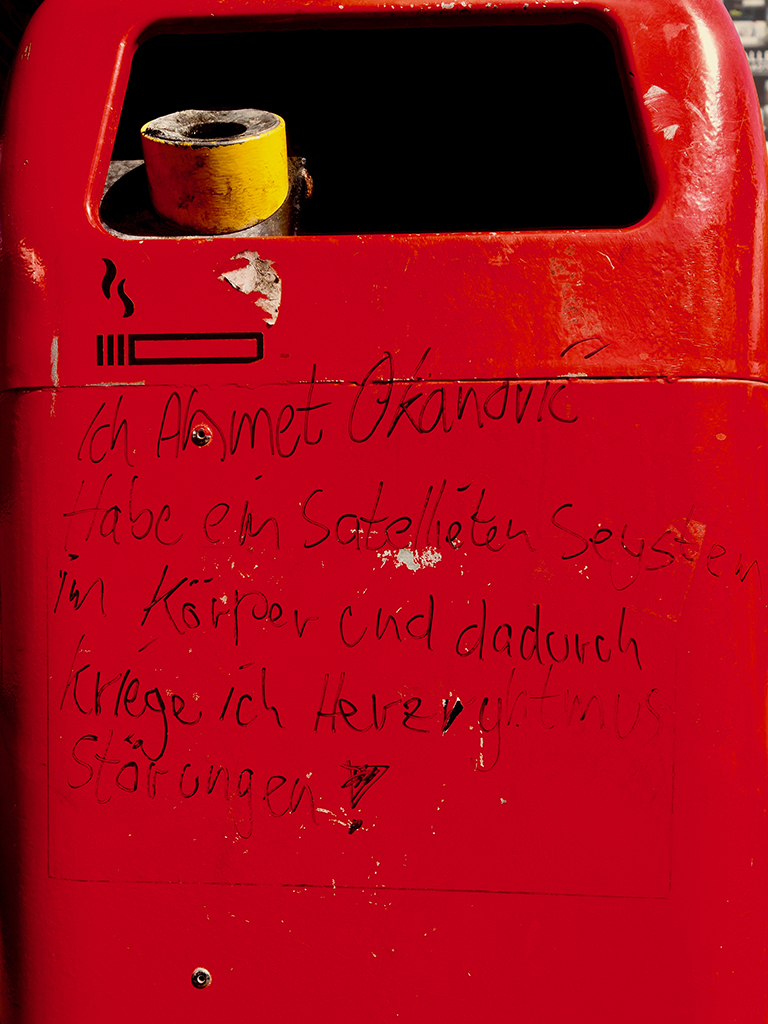 Ich Ahmet Okanović
Habe ein Satellieten Seystem
im Körper und dadurch
kriege ich Herzryhtmus
Störungen!